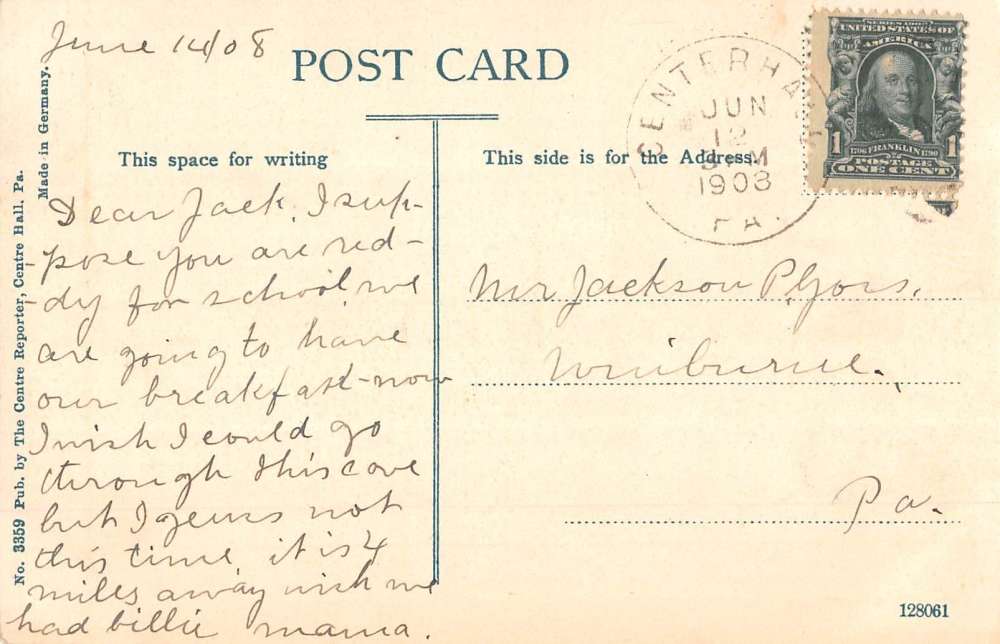 June 14/08
POST CARD
This space for writing
This side is for the Address.
Made in Germany.
No. 3359 Pub. by The Centre Reporter, Centre Hall, Pa.
CENTERHALL
JUN
12
PM
1908
PA.
SERIES 1902
UNITED STATES OF
AMERICA
1 1
1706 FRANKLIN 1790
POSTAGE
ONE CENT
Dear Jack, I sup-
-pose you are red-
-dy for school, we
are going to have
our breakfast now
I wish I could go
through this cave
but I geuss not
this time, it is 4
miles away wish we
had billie mama.
Mr Jackson P.
Winburne.
Pa.
128061